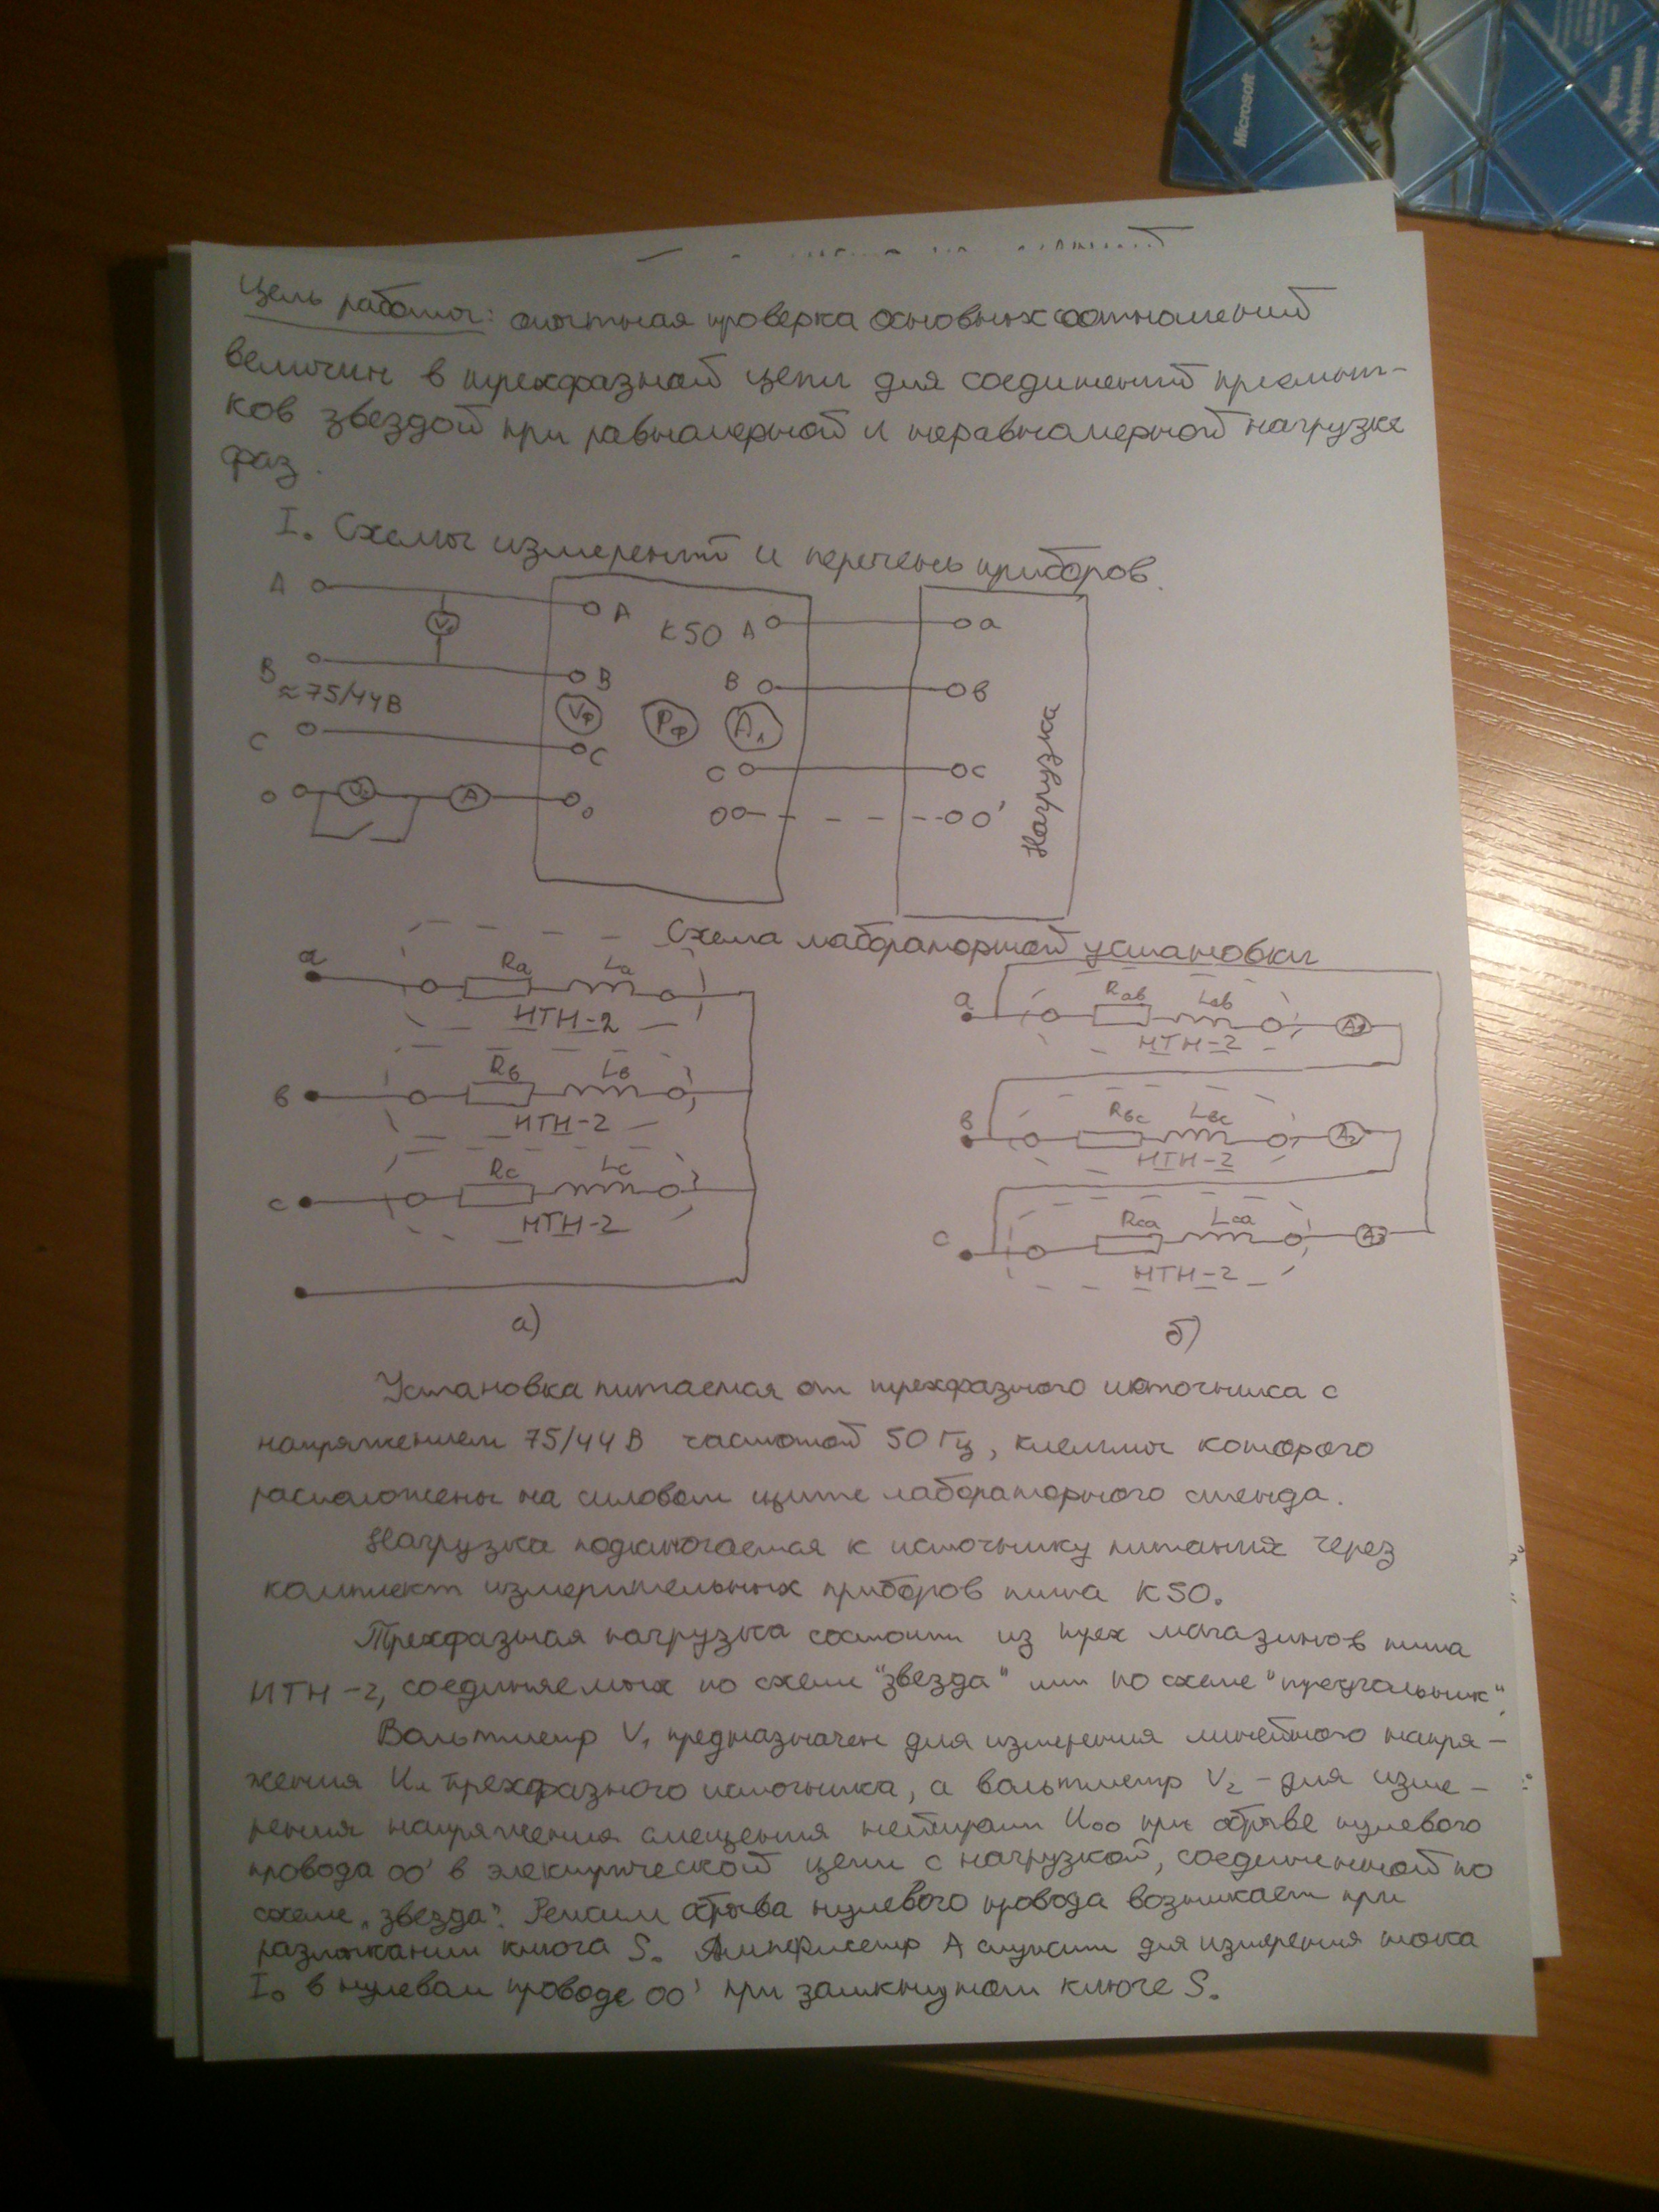 Microsoft
Цель работы: опытная проверка основных соотношений
величин в трехфазной цепи для соединений приемни-
ков звездой при равномерной и неравномерной нагрузке
фаз.
I. Схемы измерений и перечень приборов.
A A K50 A a
V₁
B B B в
≈75/44В Vф Pф Aл
C C C c
O V₂ A O O O'
Нагрузка
Схема лабораторной установки
a Ra La
НТН-2
в Rв Lв
НТН-2
c Rc Lc
НТН-2
а)
a Raв Laв A1
НТН-2
в Rвc Lвc A2
НТН-2
c Rca Lca A3
НТН-2
б)
Установка питается от трехфазного источника с
напряжением 75/44 В частотой 50 Гц, клеммы которого
расположены на силовом щите лабораторного стенда.
Нагрузка подключается к источнику питания через
комплект измерительных приборов типа К50.
Трехфазная нагрузка состоит из трех магазинов типа
НТН-2, соединяемых по схеме "звезда" или по схеме "треугольник".
Вольтметр V₁ предназначен для измерения линейного напря-
жения Uл трехфазного источника, а вольтметр V₂ - для изме-
рения напряжения смещения нейтрали U₀₀ при обрыве нулевого
провода OO' в электрической цепи с нагрузкой, соединенной по
схеме „звезда". Режим обрыва нулевого провода возникает при
размыкании ключа S. Амперметр А служит для измерения тока
I₀ в нулевом проводе OO' при замкнутом ключе S.